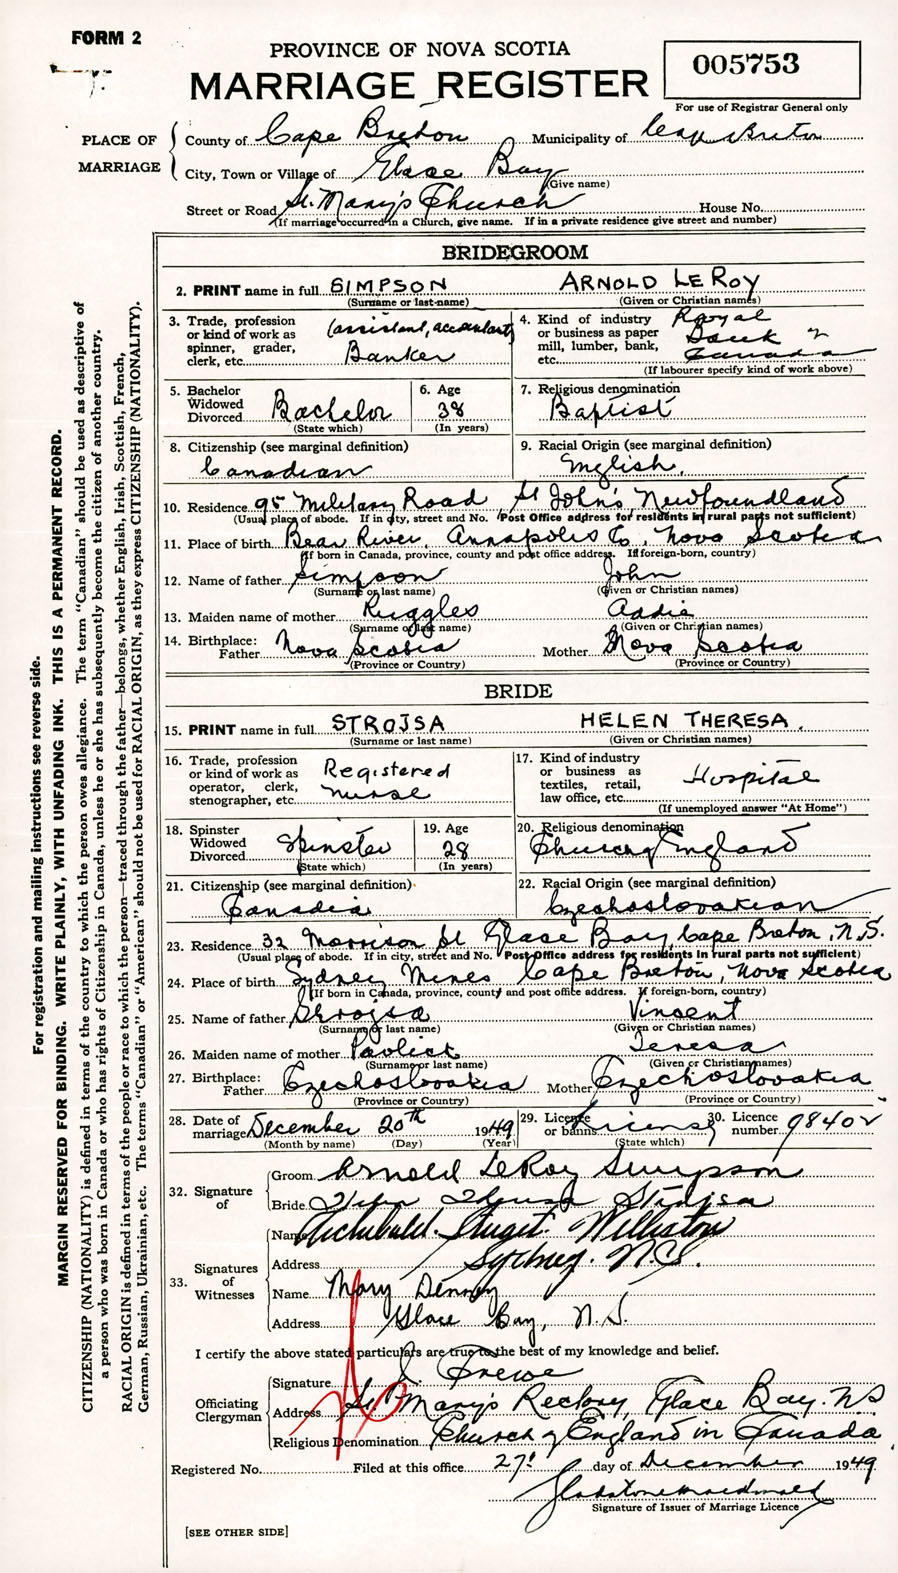 FORM 2
PROVINCE OF NOVA SCOTIA
MARRIAGE REGISTER
005753
For use of Registrar General only
PLACE OF MARRIAGE
County of Cape Breton Municipality of Cape Breton
City, Town or Village of Glace Bay
(Give name)
Street or Road St. Mary's Church House No.
(If marriage occurred in a Church, give name. If in a private residence give street and number)
BRIDEGROOM
2. PRINT name in full SIMPSON ARNOLD LEROY
(Surname or last name) (Given or Christian names)
3. Trade, profession or kind of work as spinner, grader, clerk, etc. (assistant, accountant) Banker
4. Kind of industry or business as paper mill, lumber, bank, etc. Royal Bank of Canada
(If labourer specify kind of work above)
5. Bachelor Widowed Divorced Bachelor
(State which)
6. Age 38
(In years)
7. Religious denomination Baptist
8. Citizenship (see marginal definition) Canadian
9. Racial Origin (see marginal definition) English.
10. Residence 95 Military Road St John's Newfoundland
(Usual place of abode. If in city, street and No. Post Office address for residents in rural parts not sufficient)
11. Place of birth Bear River, Annapolis Co, Nova Scotia
(If born in Canada, province, county and post office address. If foreign-born, country)
12. Name of father Simpson John
(Surname or last name) (Given or Christian names)
13. Maiden name of mother Ruggles Addie
(Surname or last name) (Given or Christian names)
14. Birthplace: Father Nova Scotia Mother Nova Scotia
(Province or Country) (Province or Country)
BRIDE
15. PRINT name in full STROJSA HELEN THERESA.
(Surname or last name) (Given or Christian names)
16. Trade, profession or kind of work as operator, clerk, stenographer, etc. Registered nurse
17. Kind of industry or business as textiles, retail, law office, etc. Hospital
(If unemployed answer "At Home")
18. Spinster Widowed Divorced Spinster
(State which)
19. Age 28
(In years)
20. Religious denomination Church of England
21. Citizenship (see marginal definition) Canadia
22. Racial Origin (see marginal definition) Czechoslovakian
23. Residence 32 Morrison St Glace Bay, Cape Breton, N.S.
(Usual place of abode. If in city, street and No. Post Office address for residents in rural parts not sufficient)
24. Place of birth Sydney Mines Cape Breton, Nova Scotia
(If born in Canada, province, county and post office address. If foreign-born, country)
25. Name of father Strojsa Vincent
(Surname or last name) (Given or Christian names)
26. Maiden name of mother Pavlick Teresa
(Surname or last name) (Given or Christian names)
27. Birthplace: Father Czechoslovakia Mother Czechoslovakia
(Province or Country) (Province or Country)
28. Date of marriage December 20th 1949
(Month by name) (Day) (Year)
29. Licence or banns License
(State which)
30. Licence number 98402
32. Signature of
Groom Arnold LeRoy Simpson
Bride Helen Theresa Strojsa
33. Signatures of Witnesses
Name Archibald Williston
Address Sydney. N.S.
Name Mary Denny
Address Glace Bay, N.S.
I certify the above stated particulars are true to the best of my knowledge and belief.
Officiating Clergyman
Signature
Address St Mary's Rectory, Glace Bay. N.S
Religious Denomination Church of England in Canada
Registered No. Filed at this office 27 day of December 1949
Gladstone Macdonald
Signature of Issuer of Marriage Licence
[SEE OTHER SIDE]
For registration and mailing instructions see reverse side.
MARGIN RESERVED FOR BINDING. WRITE PLAINLY, WITH UNFADING INK. THIS IS A PERMANENT RECORD.
CITIZENSHIP (NATIONALITY) is defined in terms of the country to which the person owes allegiance. The term "Canadian" should be used as descriptive of
a person who was born in Canada or who has rights of Citizenship in Canada, unless he or she has subsequently become the citizen of another country.
RACIAL ORIGIN is defined in terms of the people or race to which the person—traced through the father—belongs, whether English, Irish, Scottish, French,
German, Russian, Ukrainian, etc. The terms "Canadian" or "American" should not be used for RACIAL ORIGIN, as they express CITIZENSHIP (NATIONALITY).